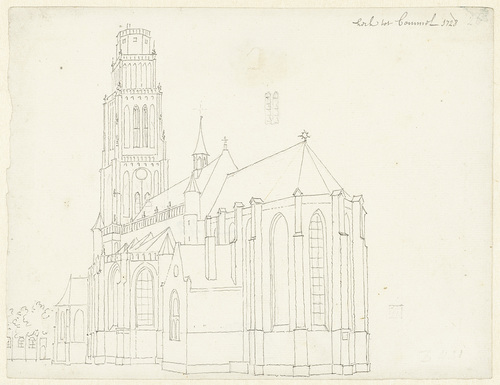 Kerk tot Bommel 1728